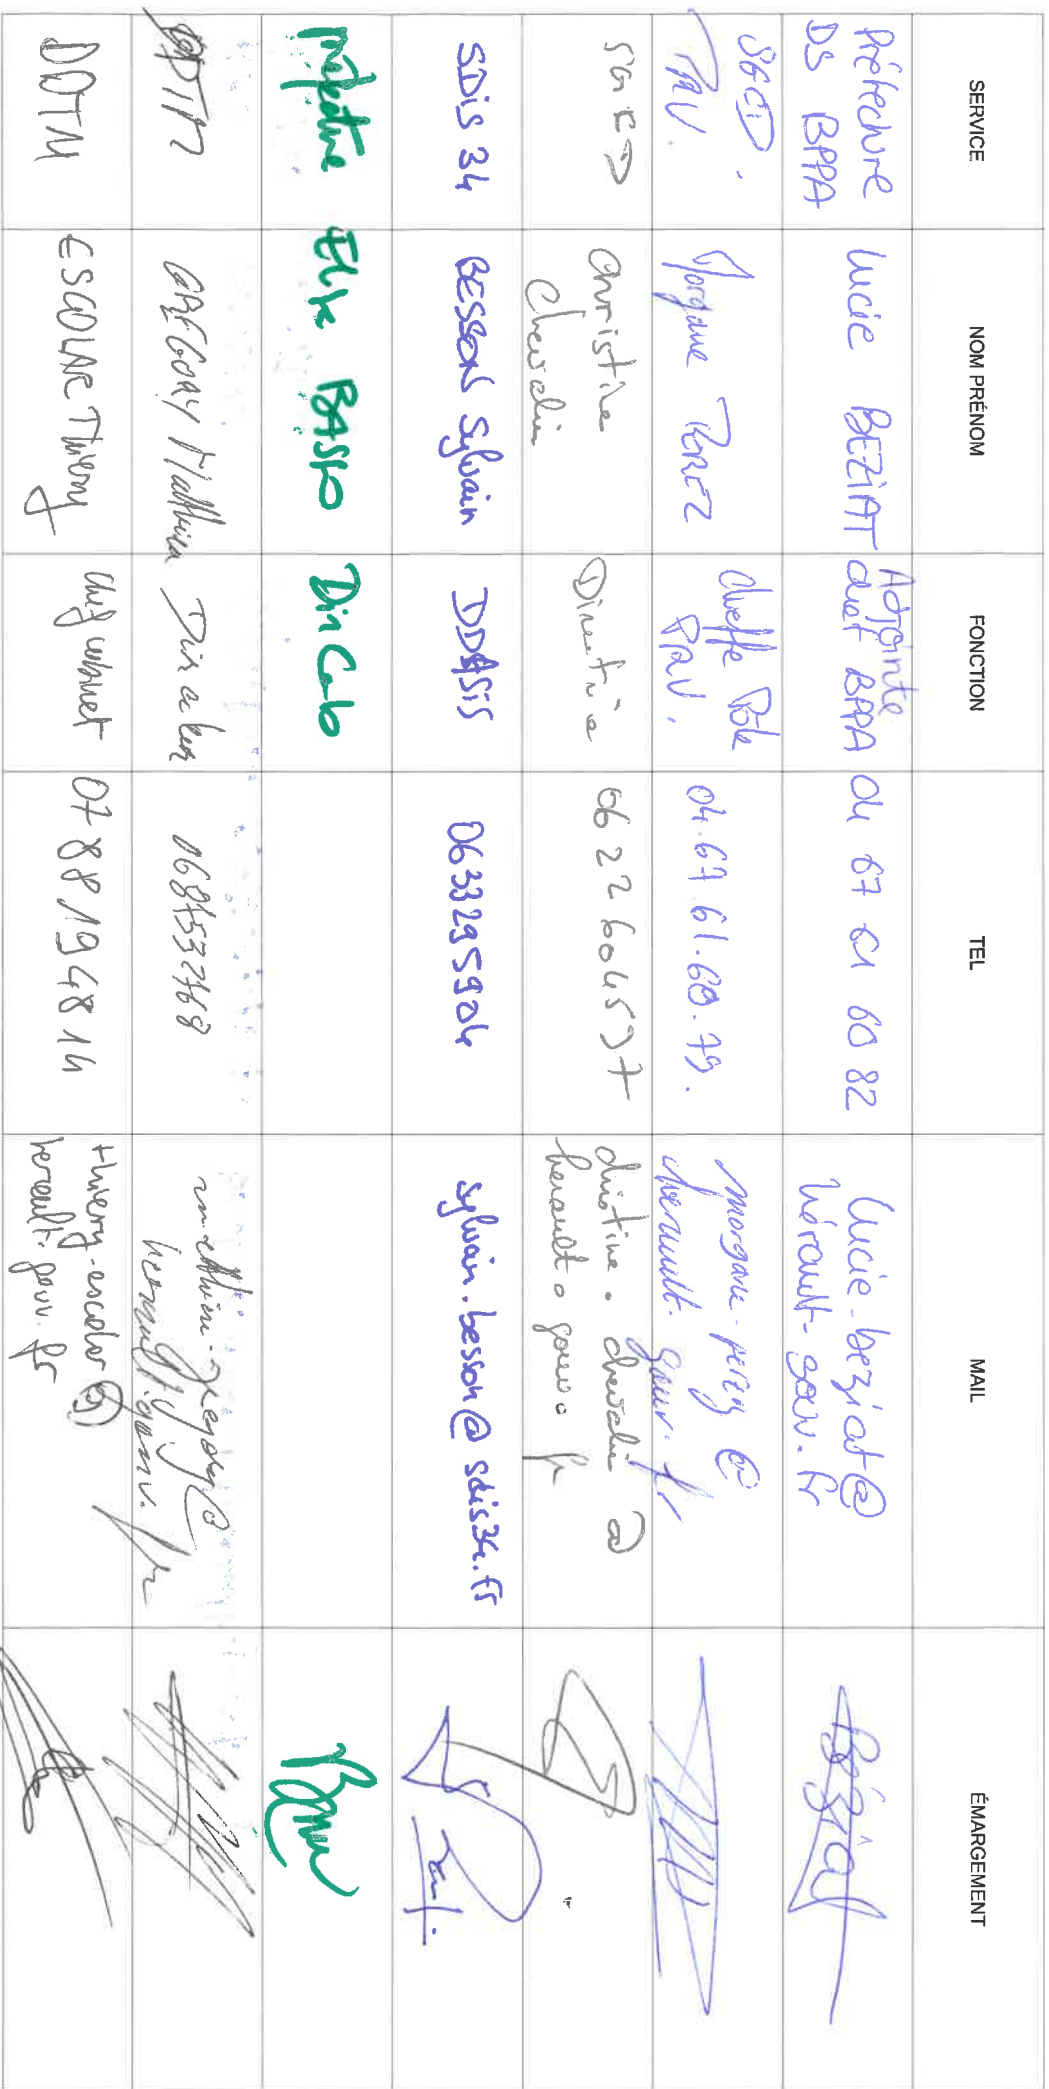 SERVICE NOM PRÉNOM FONCTION TEL MAIL ÉMARGEMENT
Préfecture
DS BPPA
Lucie BEZIAT
Adjointe
chef BPPA
04 67 61 60 82
lucie.beziat@
hérault.gouv.fr
Béziat
SGCD.
PRU.
Morgane PEREZ
cheffe Pôle
PRU.
04.67.61.60.79.
morgane.perez@
herault.gouv.fr
SGCD
Christine
Chevalier
Directrice
06 22 60 45 37
christine.chevalier@
herault.gouv.fr
SDIS 34
BESSON Sylvain
DDASIS
0633295904
sylvain.besson@sdis34.fr
Préfecture
BASSO
Dir Cab
DDTM
GREGORY Matthieu
Directeur
0687532768
matthieu.gregory@
herault.gouv.fr
DDTM
ESCOLAR Thierry
chef cabinet
07 88 19 48 14
thierry.escolar@
herault.gouv.fr